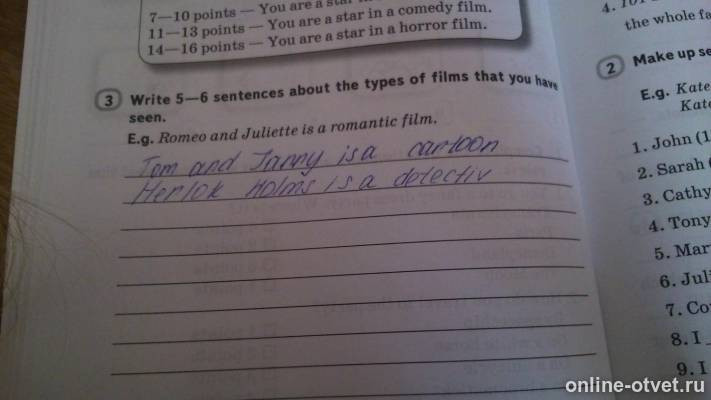 7—10 points — You are a star
11—13 points — You are a star in a comedy film.
14—16 points — You are a star in a horror film.
3 Write 5—6 sentences about the types of films that you have
seen.
E.g. Romeo and Juliette is a romantic film.
Tom and Janny is a cartoon
Herlok Holms is a detectiv
4.
the whole fa
2 Make up se
E.g. Kate
Kate
1. John (1
2. Sarah (
3. Cathy
4. Tony
5. Mar
6. Juli
7. Co
8. I
9. I
online-otvet.ru